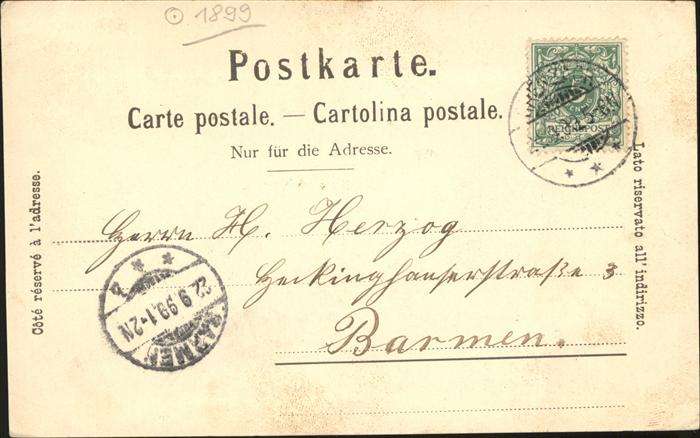 1899
Postkarte.
Carte postale. — Cartolina postale.
Nur für die Adresse.
5
REICHSPOST
Côté réservé à l'adresse.
Lato riservato all' indirizzo.
Herrn H. Herzog
Heckinghauserstraße 3
Barmen.
BARMEN
22.9.99.1-2N